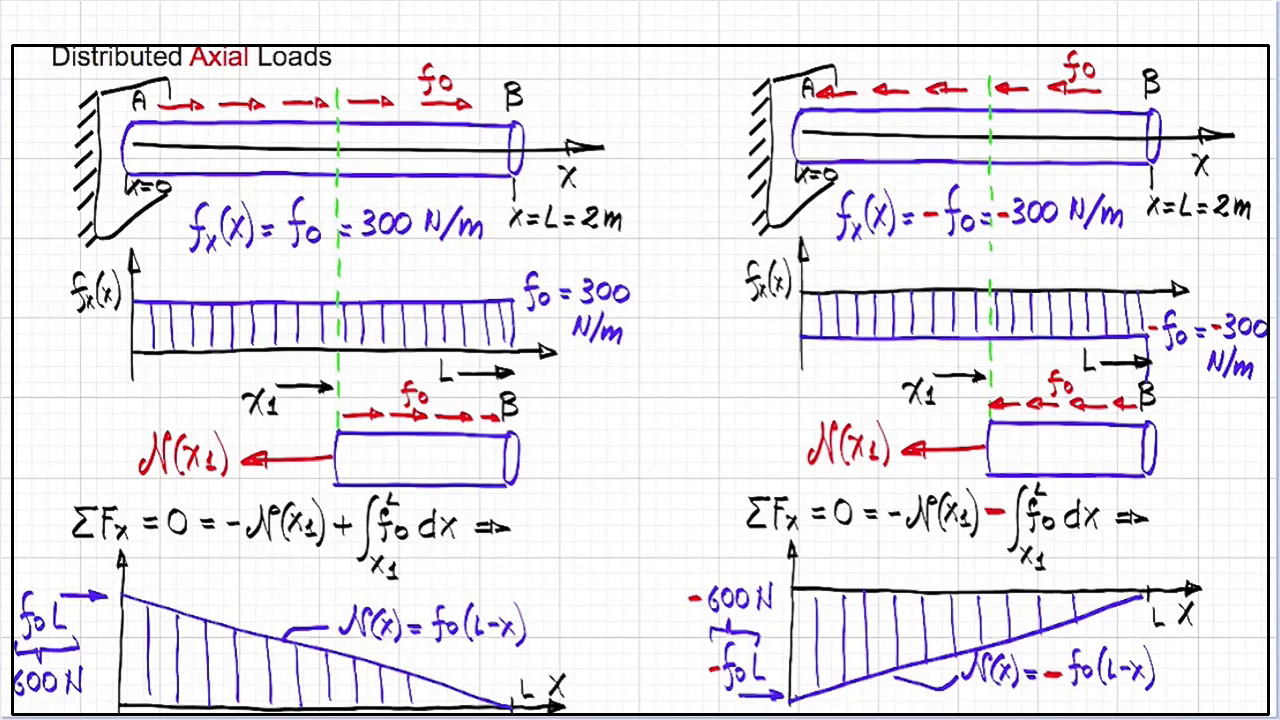 Distributed Axial Loads
A f₀ B
x=0 x
fₓ(x) = f₀ = 300 N/m x=L=2m
fₓ(x) f₀ = 300 N/m
L
x₁ f₀ B
N(x₁)
ΣFₓ = 0 = -N(x₁) + ∫ₓ₁ᴸ f₀ dx ⇒
f₀L N(x) = f₀(L-x)
600 N L x
A f₀ B
x=0 x
fₓ(x) = -f₀ = -300 N/m x=L=2m
fₓ(x) -f₀ = -300 N/m
L
x₁ f₀ B
N(x₁)
ΣFₓ = 0 = -N(x₁) - ∫ₓ₁ᴸ f₀ dx ⇒
-600 N L x
-f₀L N(x) = -f₀(L-x)